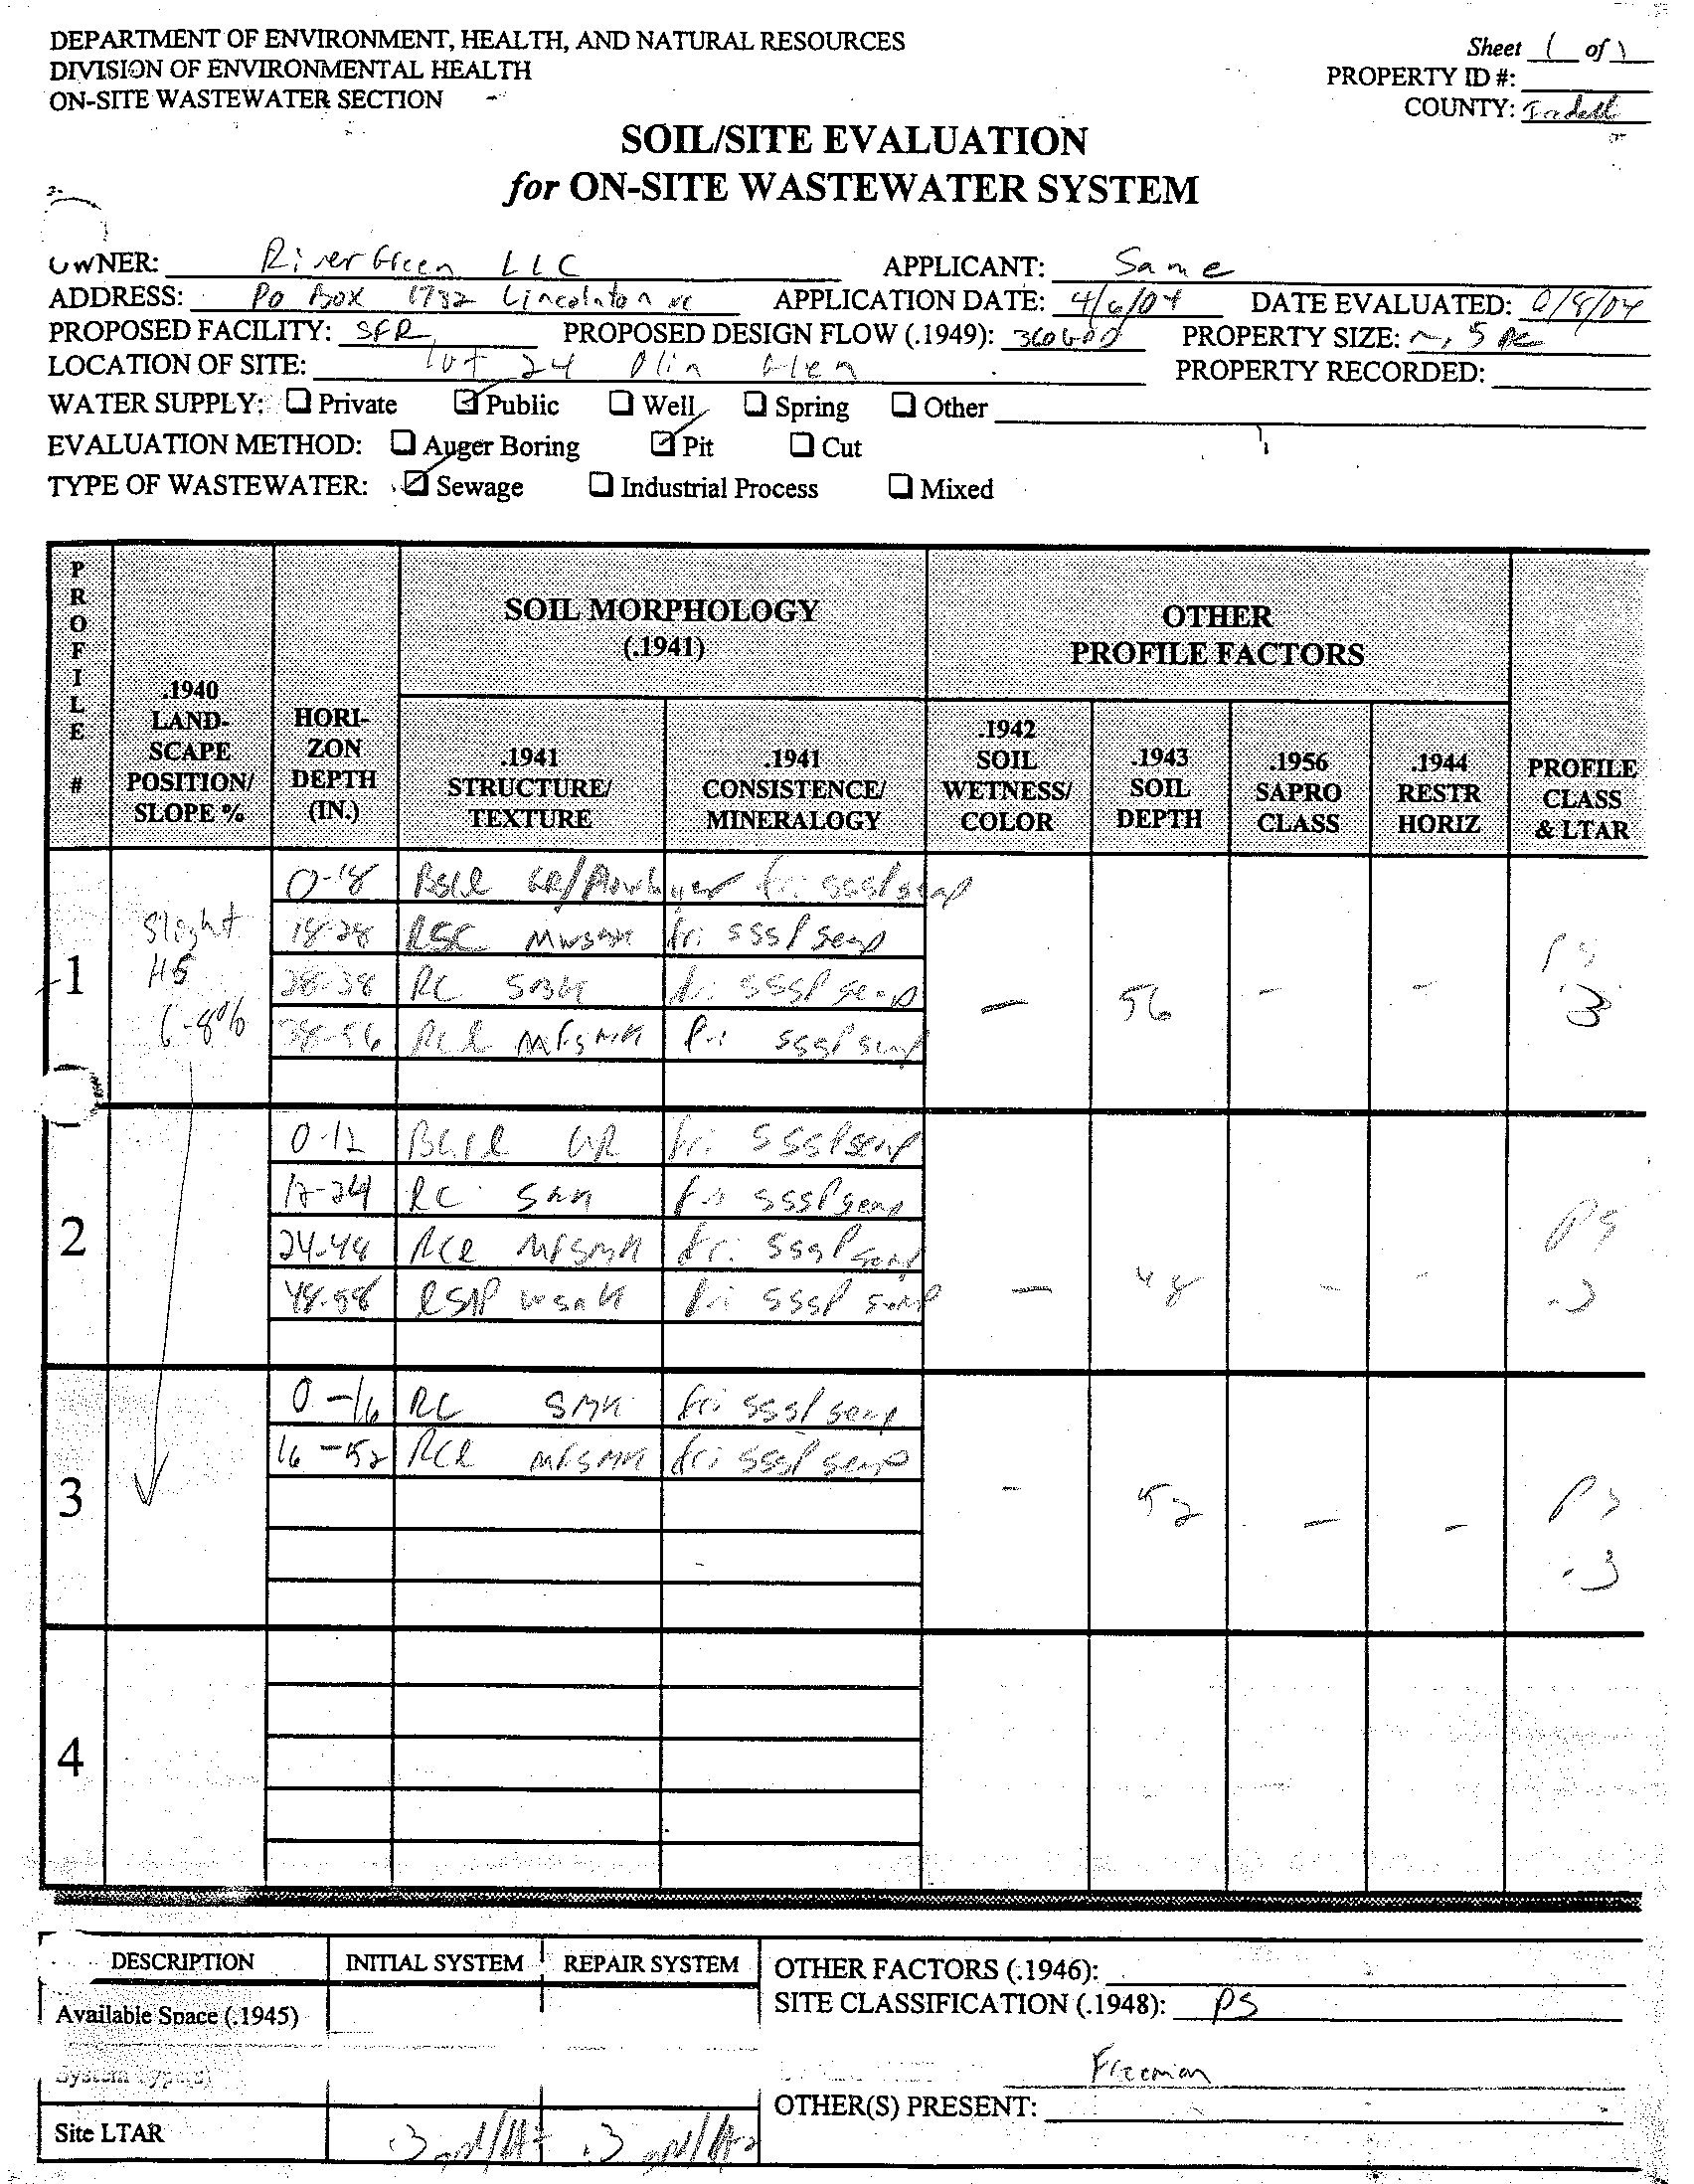 DEPARTMENT OF ENVIRONMENT, HEALTH, AND NATURAL RESOURCES
DIVISION OF ENVIRONMENTAL HEALTH
ON-SITE WASTEWATER SECTION
Sheet 1 of 1
PROPERTY ID #:
COUNTY: Iredell
SOIL/SITE EVALUATION
for ON-SITE WASTEWATER SYSTEM
OWNER: River Green LLC APPLICANT: Same
ADDRESS: Po Box 1782 Lincolnton nc APPLICATION DATE: 4/6/04 DATE EVALUATED:
PROPOSED FACILITY: SFR PROPOSED DESIGN FLOW (.1949): 360 GPD PROPERTY SIZE: ~.5 Ac
LOCATION OF SITE: lot 24 Olin Glen PROPERTY RECORDED:
WATER SUPPLY: Private Public Well Spring Other
EVALUATION METHOD: Auger Boring Pit Cut
TYPE OF WASTEWATER: Sewage Industrial Process Mixed
PROFILE #
.1940 LAND-SCAPE POSITION/ SLOPE %
HORI-ZON DEPTH (IN.)
SOIL MORPHOLOGY (.1941)
.1941 STRUCTURE/ TEXTURE
.1941 CONSISTENCE/ MINERALOGY
OTHER PROFILE FACTORS
.1942 SOIL WETNESS/ COLOR
.1943 SOIL DEPTH
.1956 SAPRO CLASS
.1944 RESTR HORIZ
PROFILE CLASS & LTAR
1
Slight
HS
6-8%
0-18 fri sssp semp
18-28 RSC fri sssp semp
28-38 RC SBK fri sssp semp
38-56 RCL fri sssp semp
— 56 - - PS
.3
2
0-12 GR fri sssp semp
12-24 RC SBK fri sssp semp
24-48 RCL fri sssp semp
48-58 fri sssp semp
— 48 - - PS
.3
3
0-16 RC SBK fri sssp semp
16-52 RCL fri sssp semp
- 52 - - PS
.3
4
DESCRIPTION INITIAL SYSTEM REPAIR SYSTEM
Available Space (.1945)
System Type(s)
Site LTAR .3 gpd/ft2 .3 gpd/ft2
OTHER FACTORS (.1946):
SITE CLASSIFICATION (.1948): PS
Freeman
OTHER(S) PRESENT: